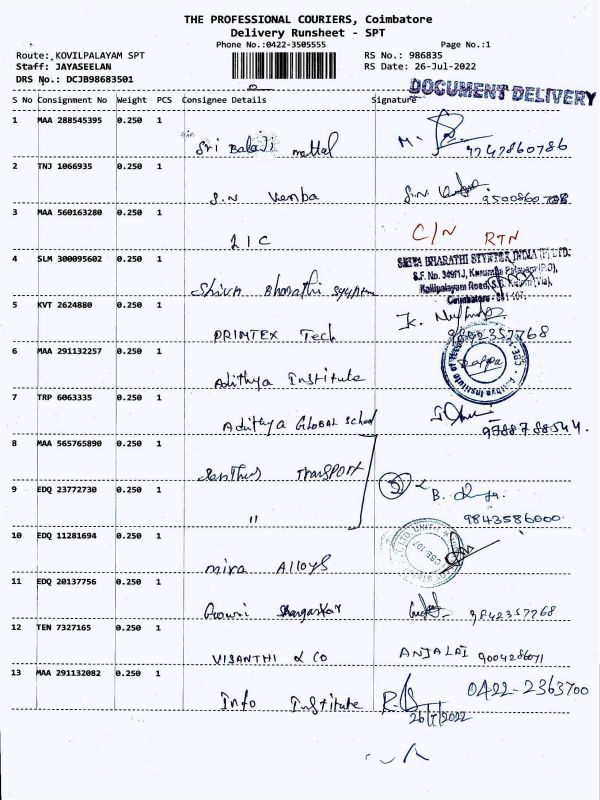 THE PROFESSIONAL COURIERS, Coimbatore
Delivery Runsheet - SPT
Phone No.:0422-3505555 Page No.:1
Route: KOVILPALAYAM SPT RS No.: 986835
Staff: JAYASEELAN RS Date: 26-Jul-2022
DRS No.: DCJB98683501
DOCUMENT DELIVERY
S No Consignment No Weight PCS Consignee Details Signature
1 MAA 288545395 0.250 1 Sri Balaji mettal M. 9747860786
2 TNJ 1066935 0.250 1 S.N Kemba S.N.
3 MAA 560163280 0.250 1 LIC C/N RTN
4 SLM 300095602 0.250 1 Shiva Bharathi
SHIVA BHARATHI SYNTEX INDIA (P) LTD.
5 KVT 2624880 0.250 1 PRIMTEX Tech K. 9842357768
6 MAA 291132257 0.250 1 Adithya Institute
7 TRP 6063335 0.250 1 Adithya GLOBAL School 9788788544.
8 MAA 565765890 0.250 1 Santhus TRANSPORT
9 EDQ 23772730 0.250 1 " 2 B. 9843586000.
10 EDQ 11281694 0.250 1 mira Alloys
11 EDQ 20137756 0.250 1 Gowri 9842357768
12 TEN 7327165 0.250 1 VISANTHI & CO ANJALAI 9004286071
13 MAA 291132082 0.250 1 Info Institute 0422-2363700
26/7/2022